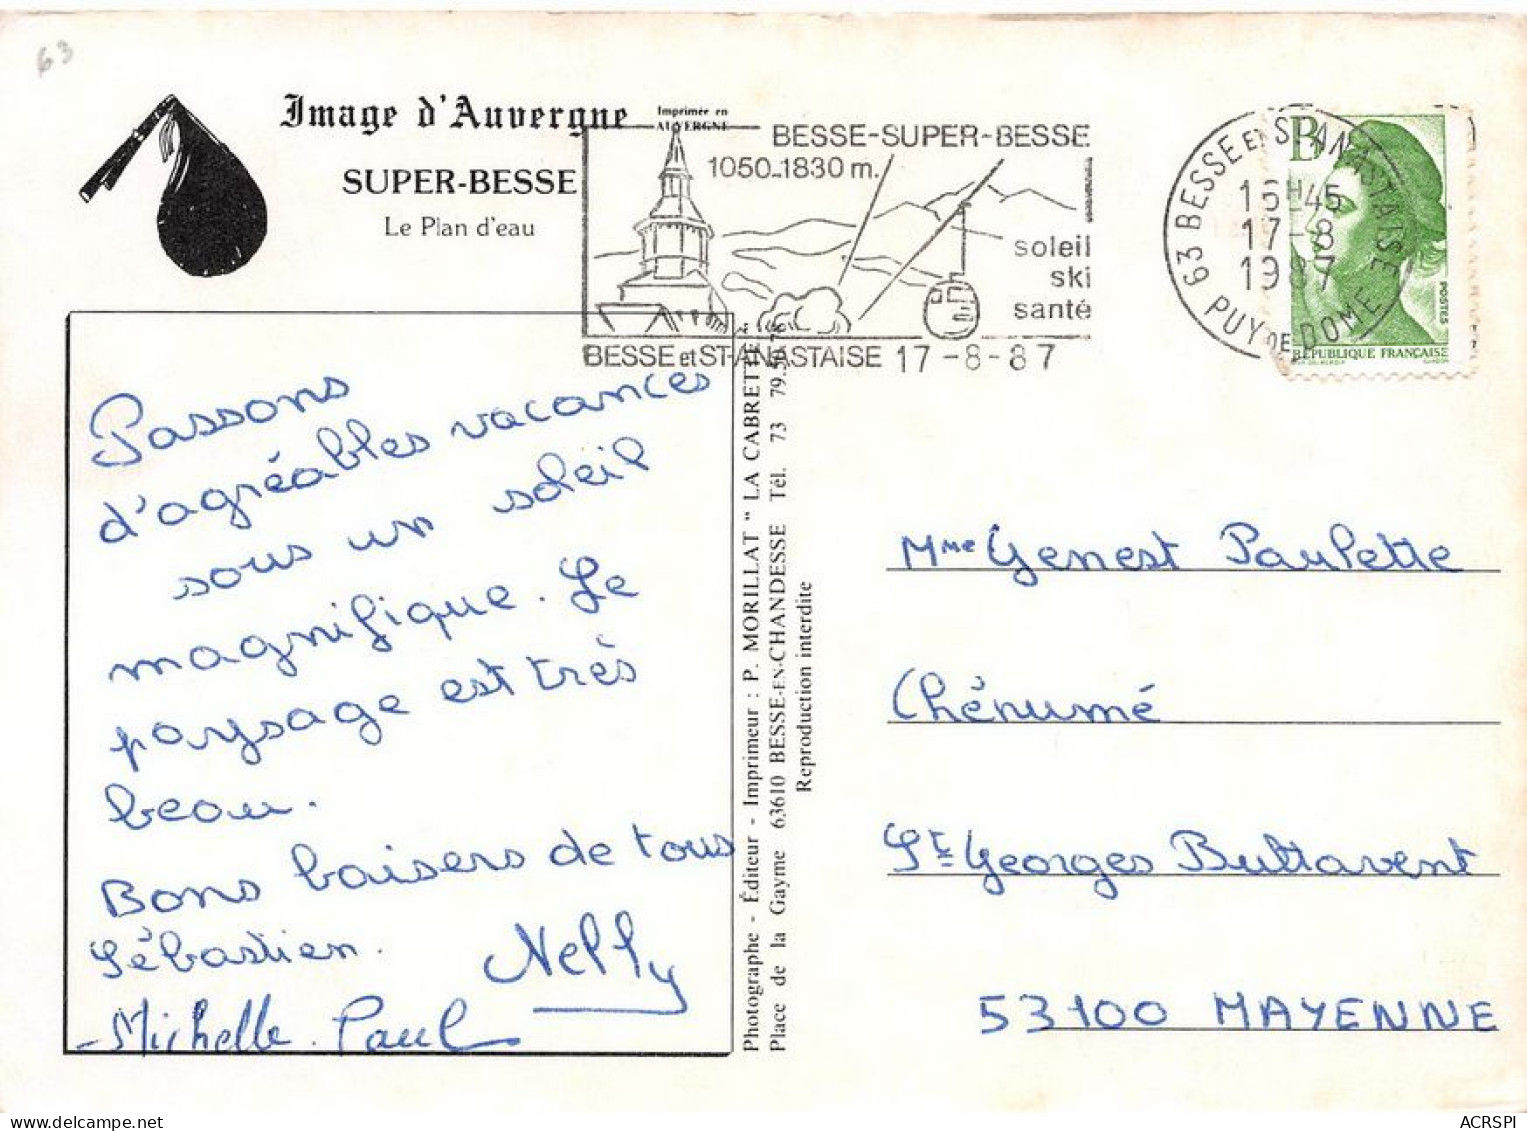 63
Image d'Auvergne
Imprimée en
AUVERGNE
SUPER-BESSE
Le Plan d'eau
BESSE-SUPER-BESSE
1050-1830 m.
soleil
ski
santé
BESSE et ST-ANASTAISE 17-8-87
63 BESSE ET ST ANASTAISE
16H45
17-8
1987
PUY DE DOME
B
POSTES
RÉPUBLIQUE FRANÇAISE
Passons
d'agréables vacances
sous un soleil
magnifique. Le
paysage est très
beau.
Bons baisers de tous
Sébastien. Nelly
-Michelle. Paul
Photographe - Éditeur - Imprimeur : P. MORILLAT " LA CABRETTE "
Place de la Gayme 63610 BESSE-EN-CHANDESSE Tél. 73 79.50
Reproduction interdite
Mme Genest Paulette
Chénumé
St Georges Buttavent
53100 MAYENNE
ACRSPI